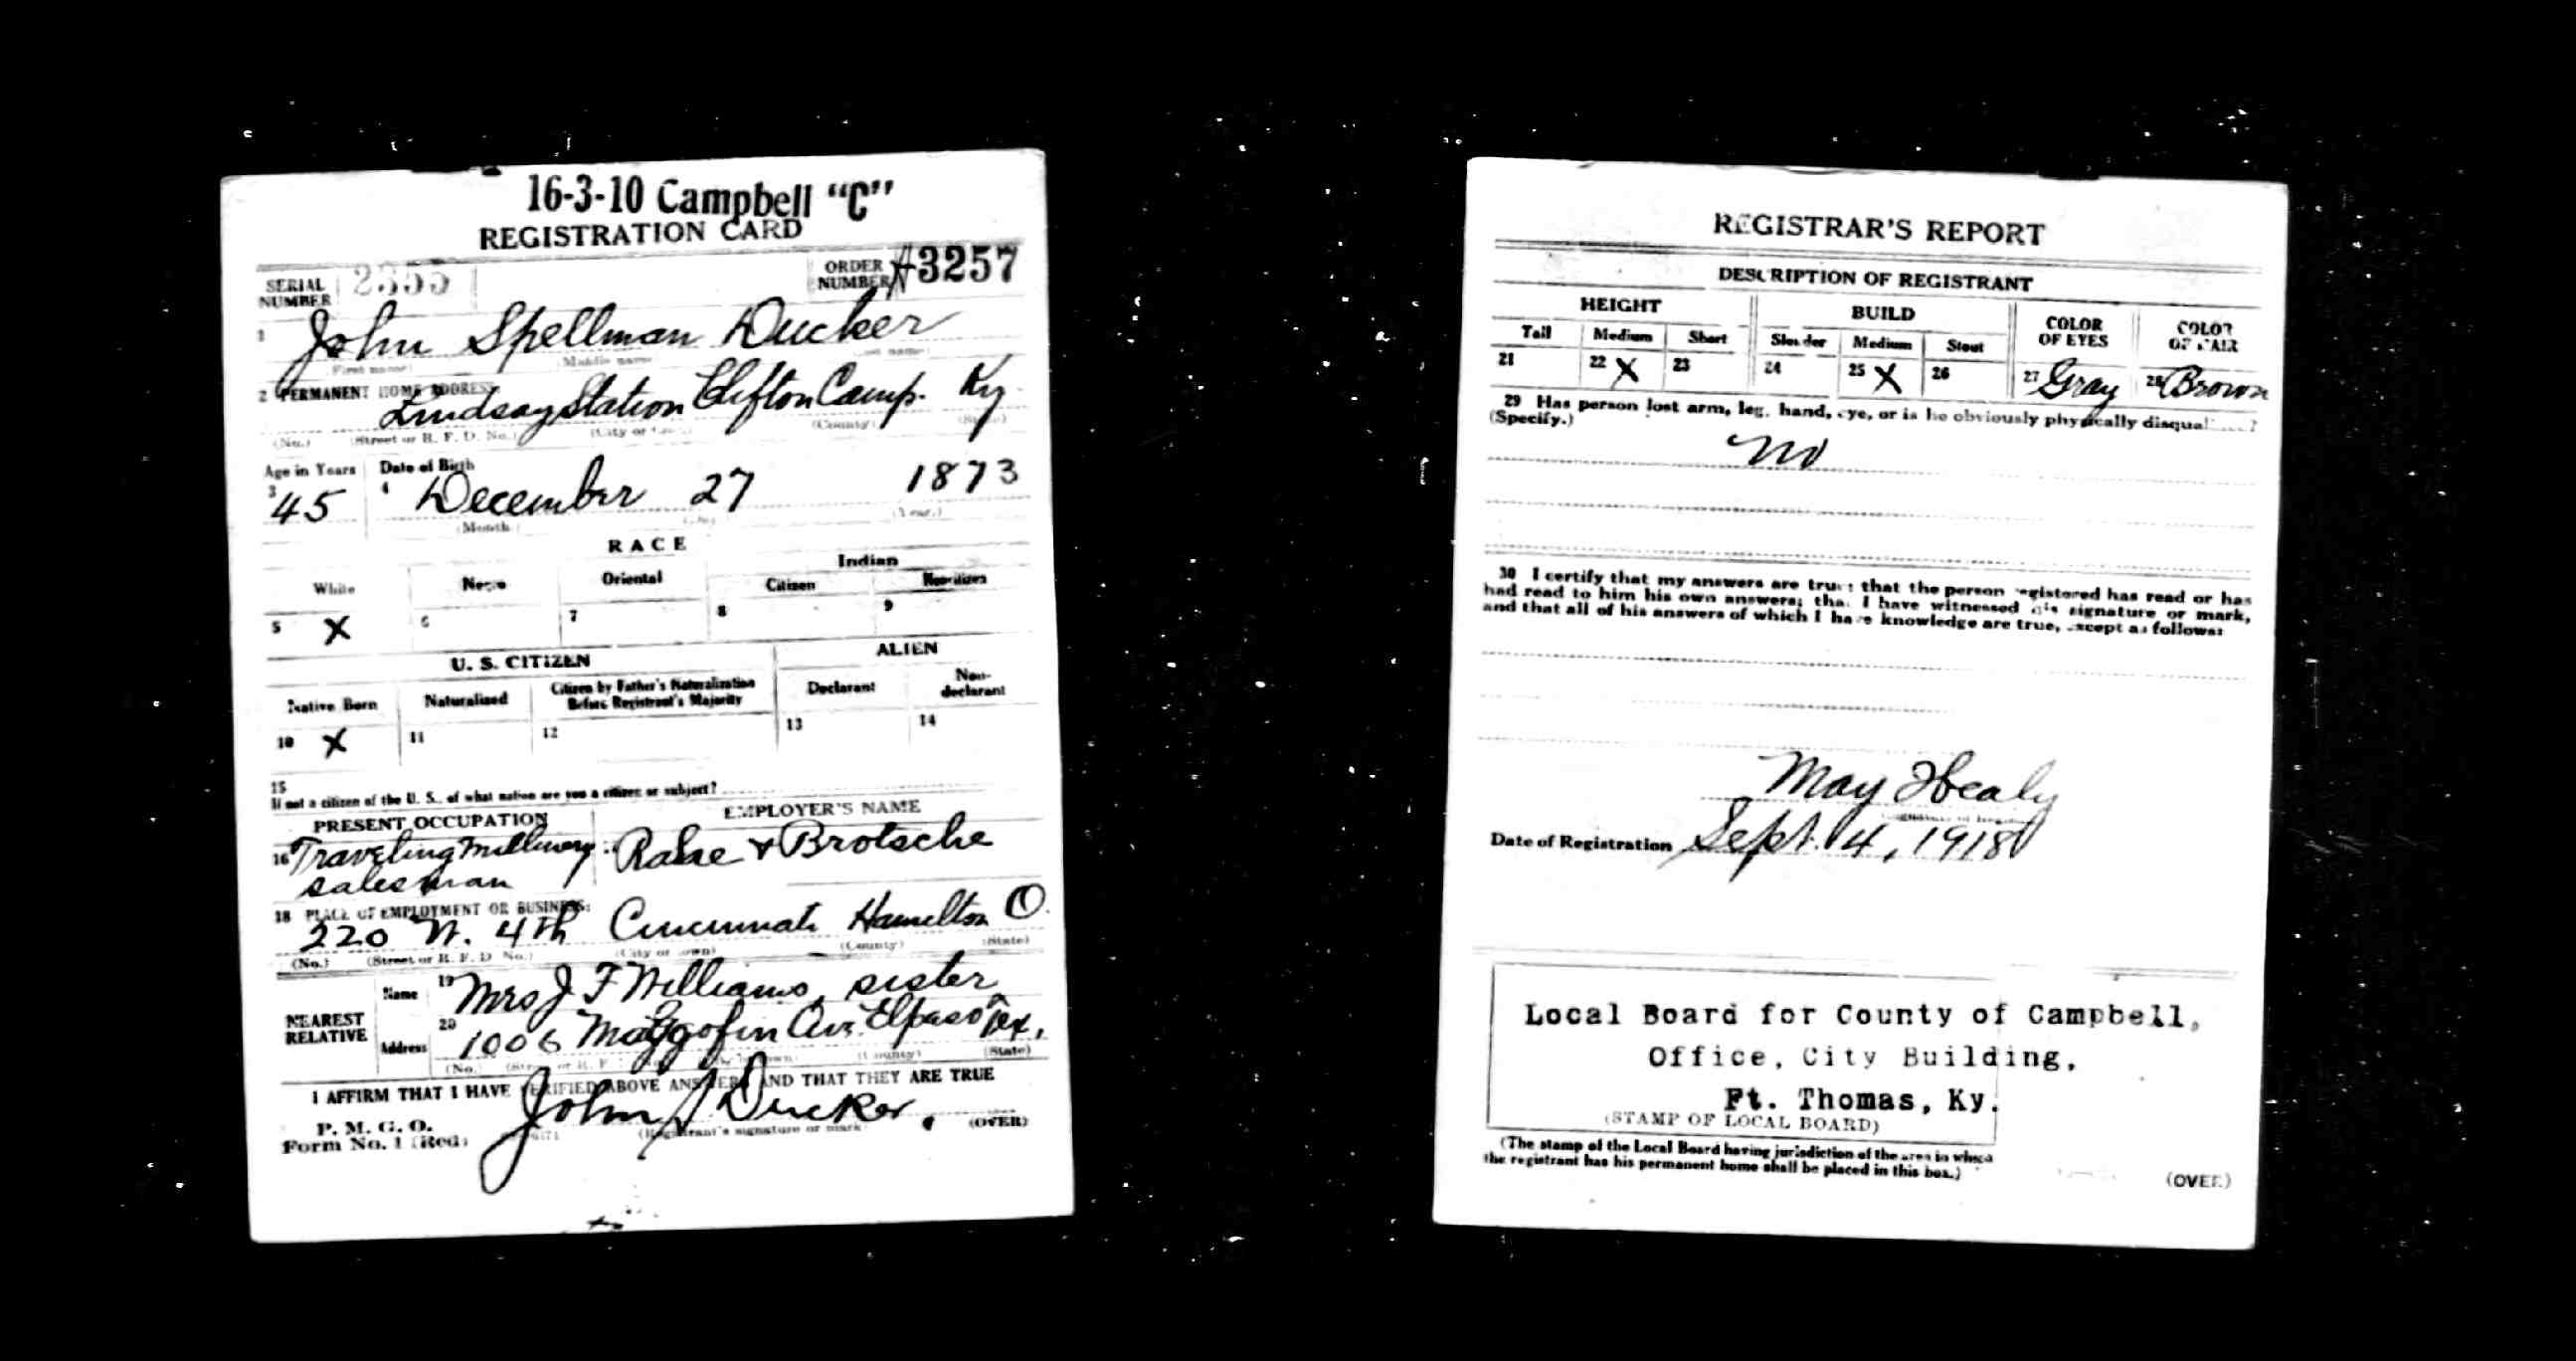 16-3-10 Campbell "C"
REGISTRATION CARD
SERIAL NUMBER 2355 ORDER NUMBER A3257
1 John Spellman Ducker
(First name) (Middle name) (Last name)
2 PERMANENT HOME ADDRESS
Lindsay Station Clifton Camp. Ky
(No.) (Street or R. F. D. No.) (City or (County) (State)
Age in Years Date of Birth
3 45 4 December 27 1873
(Month) (Day) (Year.)
RACE
White Negro Oriental Indian
Citizen Noncitizen
5 X 6 7 8 9
U. S. CITIZEN ALIEN
Native Born Naturalized Citizen by Father's Naturalization Before Registrant's Majority Declarant Non-declarant
10 X 11 12 13 14
15
If not a citizen of the U. S., of what nation are you a citizen or subject?
PRESENT OCCUPATION EMPLOYER'S NAME
16 Traveling Millinery Rabe & Brotsche
salesman
18 PLACE OF EMPLOYMENT OR BUSINESS:
220 W. 4th Cincinnati Hamilton O.
(No.) (Street or R. F. D. No.) (City or town) (County) (State)
NEAREST RELATIVE
Name 19 Mrs J F Williams, sister
Address 20 1006 Maggofin Ave. Elpaso Tex,
(No.) (County) (State)
I AFFIRM THAT I HAVE VERIFIED ABOVE ANSWERS AND THAT THEY ARE TRUE
P. M. G. O.
Form No. 1 (Red) John S Ducker
(Registrant's signature or mark) (OVER)
REGISTRAR'S REPORT
DESCRIPTION OF REGISTRANT
HEIGHT BUILD COLOR OF EYES COLOR OF HAIR
Tall Medium Short Slender Medium Stout
21 22 X 23 24 25 X 26 27 Gray 28 Brown
29 Has person lost arm, leg, hand, eye, or is he obviously physically disqualified?
(Specify.)
No
30 I certify that my answers are true; that the person registered has read or has
had read to him his own answers; that I have witnessed his signature or mark,
and that all of his answers of which I have knowledge are true, except as follows:
May Healy
Date of Registration Sept. 4, 1918
Local Board for County of Campbell,
Office, City Building,
Ft. Thomas, Ky.
(STAMP OF LOCAL BOARD)
(The stamp of the Local Board having jurisdiction of the area in which
the registrant has his permanent home shall be placed in this box.)
(OVER)